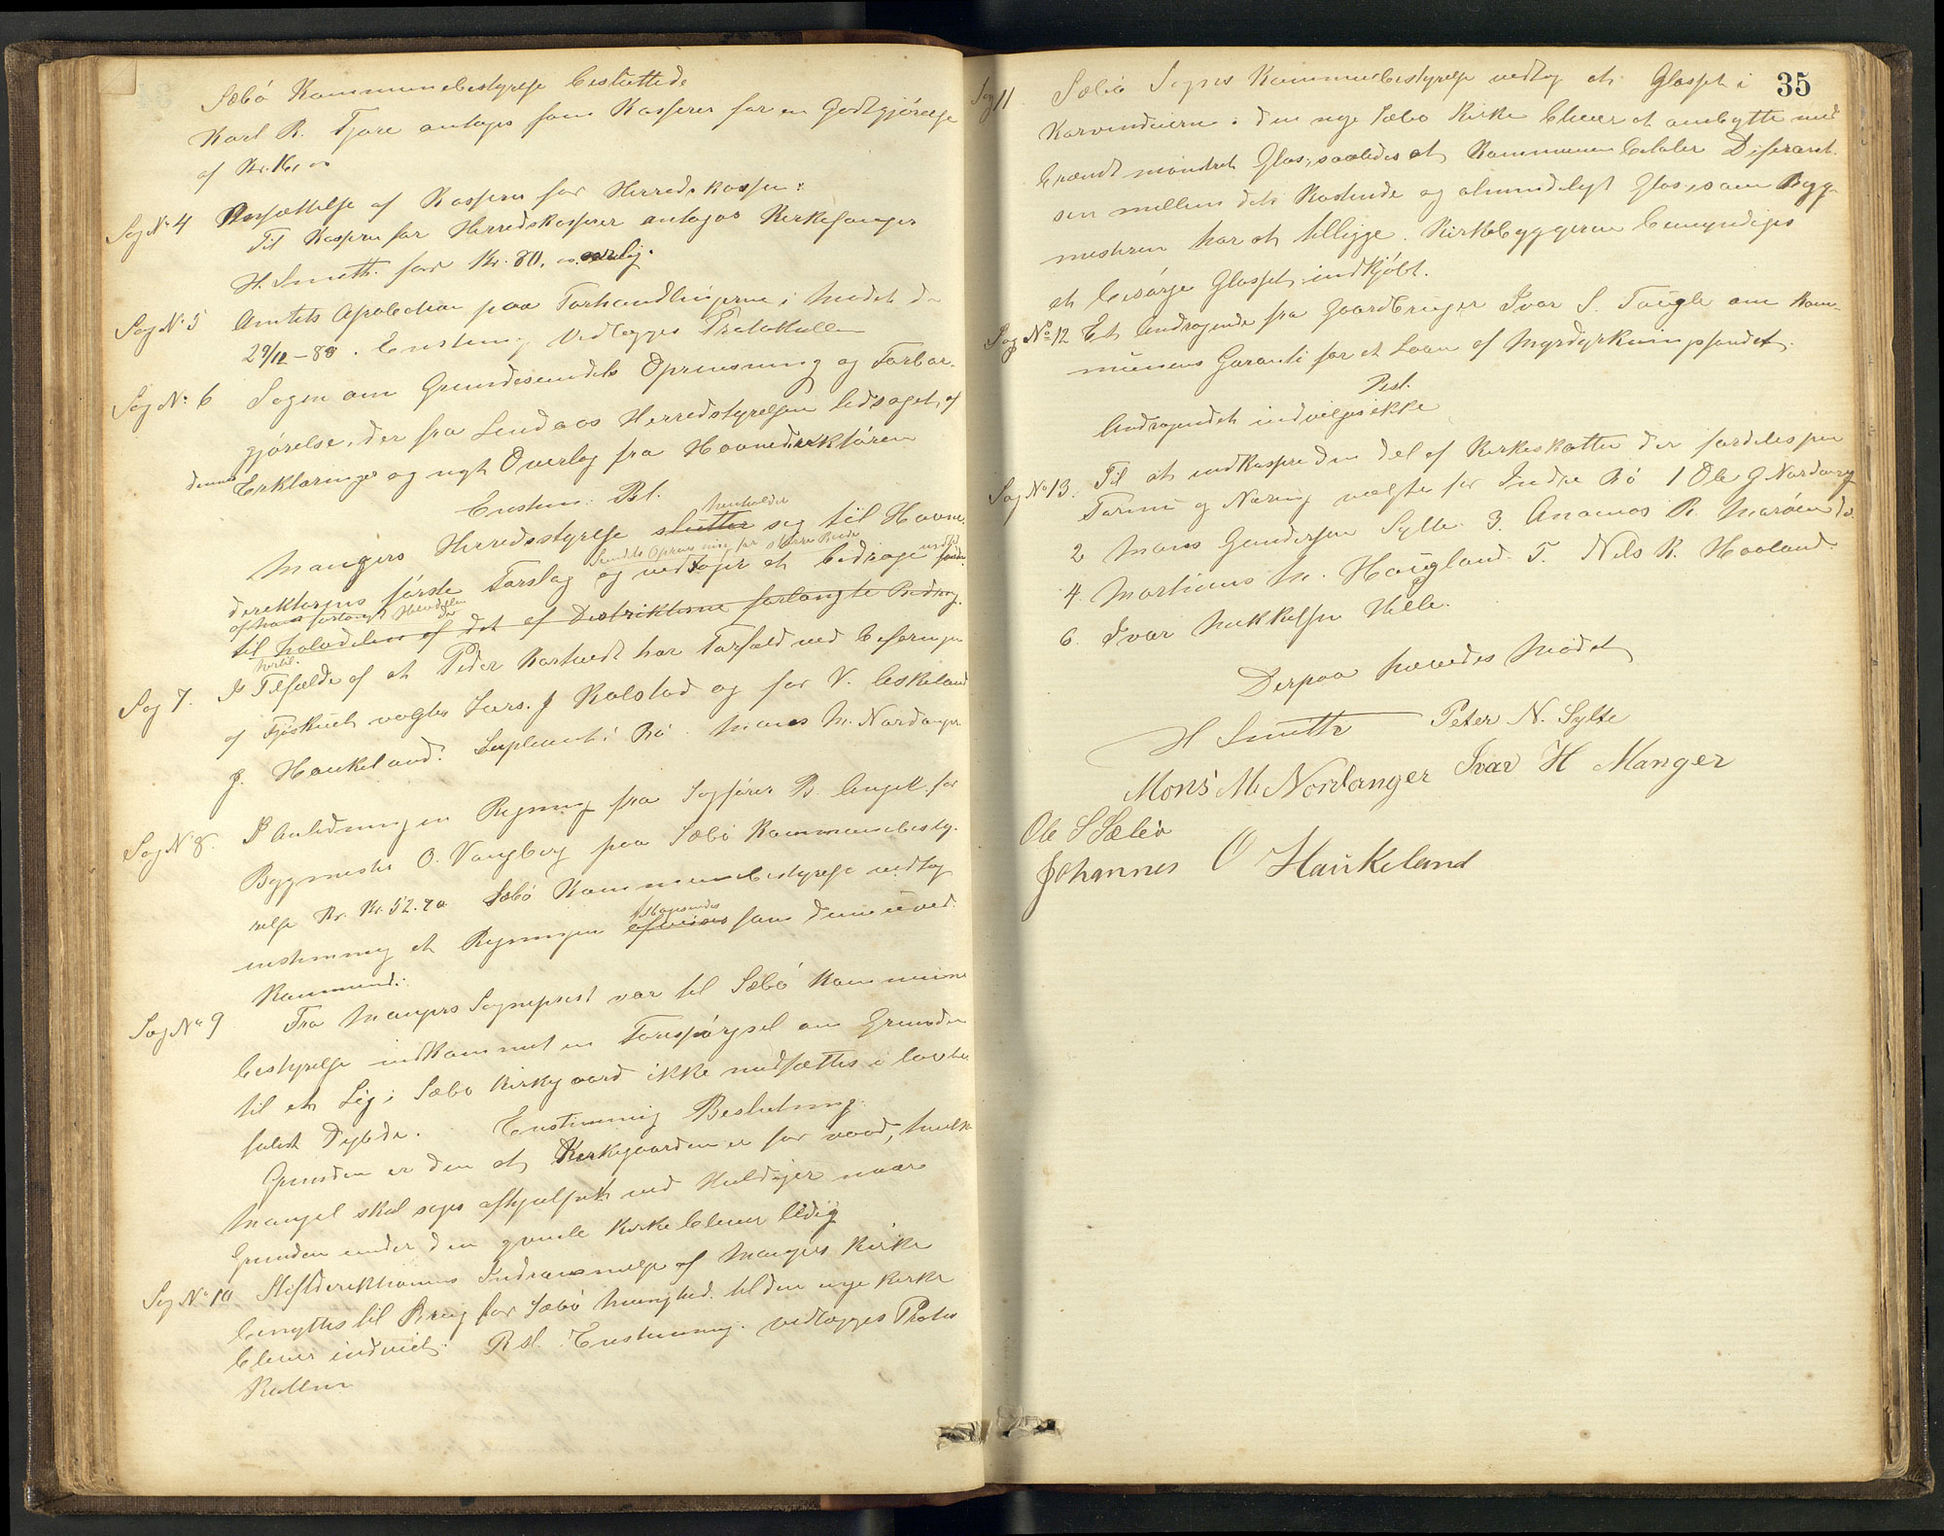 Sæbö Kommunebestyrelse besluttede
Karl R. Tjore antages som Kasserer for en Godtgjörelse
af Kr. 16,00
Sag No 4 Ansættelse af Kasserer for Herredskassen:
Til Kasserer for Herredskasserer antages Kirkesanger
H. Smith for Kr. 80,00 aarlig.
Sag No 5 Amtets Aprobation paa Forhandlingerne i Mödet d.
29/12-88. Enstemig Vedlægges Protokollen
Sag No 6 Sagen om Grundesundets Oprensning og Forbar-
gjörelse, der fra Lindaas Herredstyrelsen ledsaget af
dennes Erklæringer og nyt Overlag fra Havnedirektören
Enstem. Bsl.
henholder
Mangers Herredsstyrelse slutter seg til Havne-
Sundets Oprensning for större Baade
direktörens förste Forslag og vedtager at bedrage
af ham forlangte Halvdelen
til halvdelen af det af Destrikterne forlangte Bedrag.
hertil.
Sag 7. I Tilfælde af at Peder Kartveit har Forfald ved Beseringen
af Fjöskiet valgtes Lars. J Kalstad og for V. Askeland
J. Haukeland. Suplent i Bö. Mons M. Nordanger
Sag N 8. I Anledning en Regning fra Sagförer B. Angell for
Bygmester O. Vangberg paa Sæbö Kommunebesty-
relse Kr. 52.70 Sæbö Kommunebestyrelse vedtog
tilbagesendes
enstemmig at Regningen afvises som denne uved-
kommend.
Sag No 9 Fra Mangers Sogneprest var til Sæbö Kommune
bestyrelse indkommet en Forespörgsel om Grunden
til at Lig i Sæbö Kirkegaard ikke nedsættes i lovbe
falet Dybde. Enstemmig Beslutning.
Grunden er den at Kirkegaarden er for vaad, hvilk
Mangel skal söges afhjulpet ved Uuldiger naar
Grunden under den gamle Kirke bliver ledig
Sag No 10 Stiftderektionens Indrömmelse af Mangers Kirke
benyttes til Brug for Sæbö Menighed til den nye Kirke
bliver indviet. Bsl. Enstemmig. vedlægges Proto
kollen
35
Sag 11. Sæbö Sogns Kommunebestyrelse vedtog at Glasset i
Korvinduerne i den nye Sæbö Kirke bliver at ombytte med
brændt mönstret Glas, saaledes at Kommunen betaler Diferanct-
sen mellem dets Kostende og almindeligt Glas, som Byg-
mesteren har at tillægge. Kirkebyggeren bemyndiges
at besörge Glasset indkjöbt.
Sag No 12 Et Andragende fra Gaardbruger Ivar S. Tougle om Kom-
munens Garanti for et Laan af Myrdyrkningsfondet.
Besl.
Andragendet indvilges ikke
Sag No 13. Til at indkassere den del af Kirkeskatten der fordeles paa
Formue og Næring valgte for Indre Bö 1 Ole G Nordanger
2 Mons Gundersen Sylte 3. Anamias R. Maröen do
4. Martinus M. Haugland. 5. Nels R. Haaland.
6. Ivar Mikkelsen Helle.
Derpaa hævedes Mödet
H Smith Peter N. Sylte
Mons M. Nordanger Ivar H Manger
Ole S Sæbö
Johannes O Haukeland